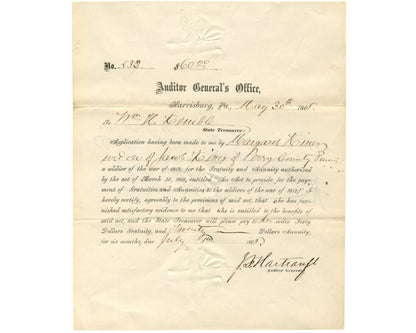 No. 533 $60 00
Auditor General's Office,
Harrisburg, Pa., May 30th 1866.
To Wm H Kemble
State Treasurer:
Application having been made to me by Margaret
widow of Jacob of Perry County
a soldier of the war of 1812, for the Gratuity and Annuity authorized
by the act of March 30, 1866, entitled "An Act to provide for the pay-
ment of Gratuities and Annuities to the soldiers of the war of 1812," I
do hereby certify, agreeably to the provisions of said act, that she has
furnished satisfactory evidence to me that she is entitled to the benefits of
said act, and the State Treasurer will please pay to her order Forty
Dollars Gratuity, and Twenty Dollars Annuity,
for six months, due July 186
J F Hartranft
Auditor General.